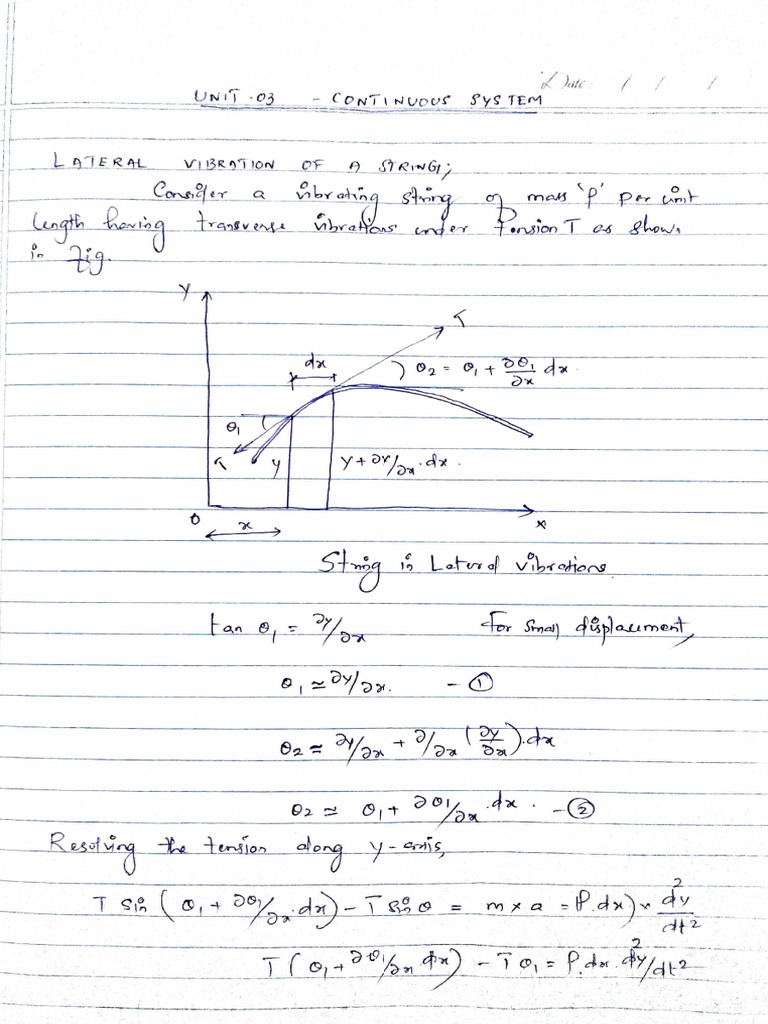 Date: / / /
UNIT-03 - CONTINUOUS SYSTEM
LATERAL VIBRATION OF A STRING;
Consider a vibrating string of mass 'ρ' per unit
length having transverse vibrations under tension T as shown
in fig.
Y
T
dx
θ2 = θ1 + ∂θ1/∂x dx.
θ1
T
y
y + ∂y/∂x · dx.
0
x
x
String in Lateral vibrations
tan θ1 = ∂y/∂x For small displacement,
θ1 ≃ ∂y/∂x. - ①
θ2 ≃ ∂y/∂x + ∂/∂x (∂y/∂x) · dx
θ2 ≃ θ1 + ∂θ1/∂x · dx. - ②
Resolving the tension along y-axis,
T sin (θ1 + ∂θ1/∂x · dx) - T sin θ = m × a = (ρ. dx) × d²y/dt²
T (θ1 + ∂θ1/∂x dx) - T θ1 = ρ. dx. d²y/dt²